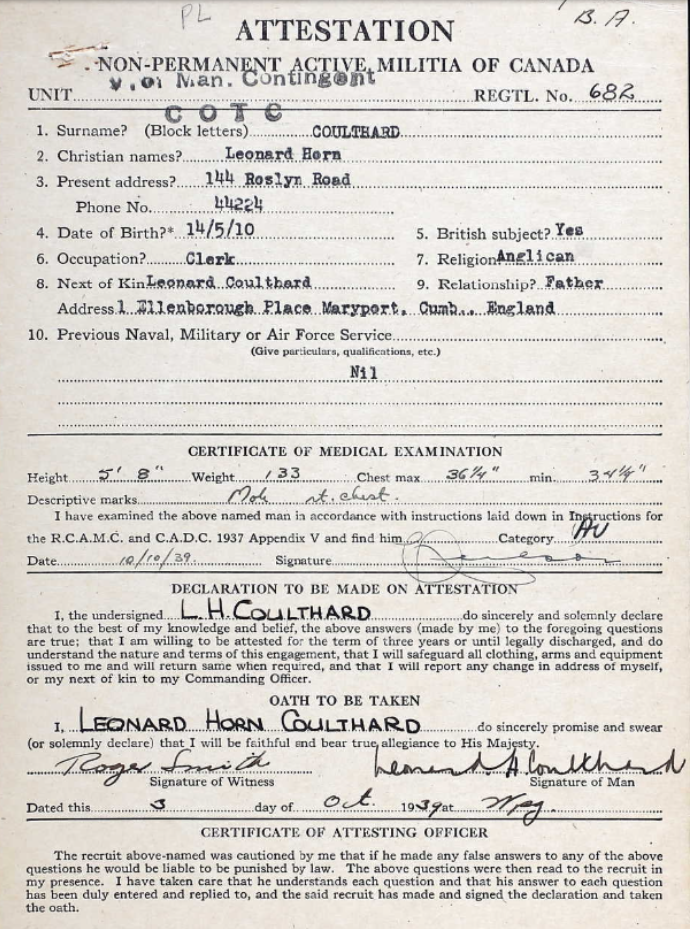 PL
B. A.
ATTESTATION
NON-PERMANENT ACTIVE MILITIA OF CANADA
Man. Contingent
UNIT REGTL. No. 682
C O T C
1. Surname? (Block letters) COULTHARD
2. Christian names? Leonard Horn
3. Present address? 144 Roslyn Road
Phone No. 44224
4. Date of Birth?* 14/5/10 5. British subject? Yes
6. Occupation? Clerk 7. Religion Anglican
8. Next of Kin Leonard Coulthard 9. Relationship? Father
Address 1 Ellenborough Place Maryport, Cumb., England
10. Previous Naval, Military or Air Force Service
(Give particulars, qualifications, etc.)
Nil
CERTIFICATE OF MEDICAL EXAMINATION
Height 5' 8" Weight 133 Chest max 36¼" min. 34¼"
Descriptive marks Mole rt. chest.
I have examined the above named man in accordance with instructions laid down in Instructions for
the R.C.A.M.C. and C.A.D.C. 1937 Appendix V and find him Category
Date 10/10/39. Signature
DECLARATION TO BE MADE ON ATTESTATION
I, the undersigned L.H. COULTHARD do sincerely and solemnly declare
that to the best of my knowledge and belief, the above answers (made by me) to the foregoing questions
are true; that I am willing to be attested for the term of three years or until legally discharged, and do
understand the nature and terms of this engagement, that I will safeguard all clothing, arms and equipment
issued to me and will return same when required, and that I will report any change in address of myself,
or my next of kin to my Commanding Officer.
OATH TO BE TAKEN
I, LEONARD HORN COULTHARD do sincerely promise and swear
(or solemnly declare) that I will be faithful and bear true allegiance to His Majesty.
Roger Smith Leonard H. Coulthard
Signature of Witness Signature of Man
Dated this 3 day of Oct. 1939 at Wpg.
CERTIFICATE OF ATTESTING OFFICER
The recruit above-named was cautioned by me that if he made any false answers to any of the above
questions he would be liable to be punished by law. The above questions were then read to the recruit in
my presence. I have taken care that he understands each question and that his answer to each question
has been duly entered and replied to, and the said recruit has made and signed the declaration and taken
the oath.